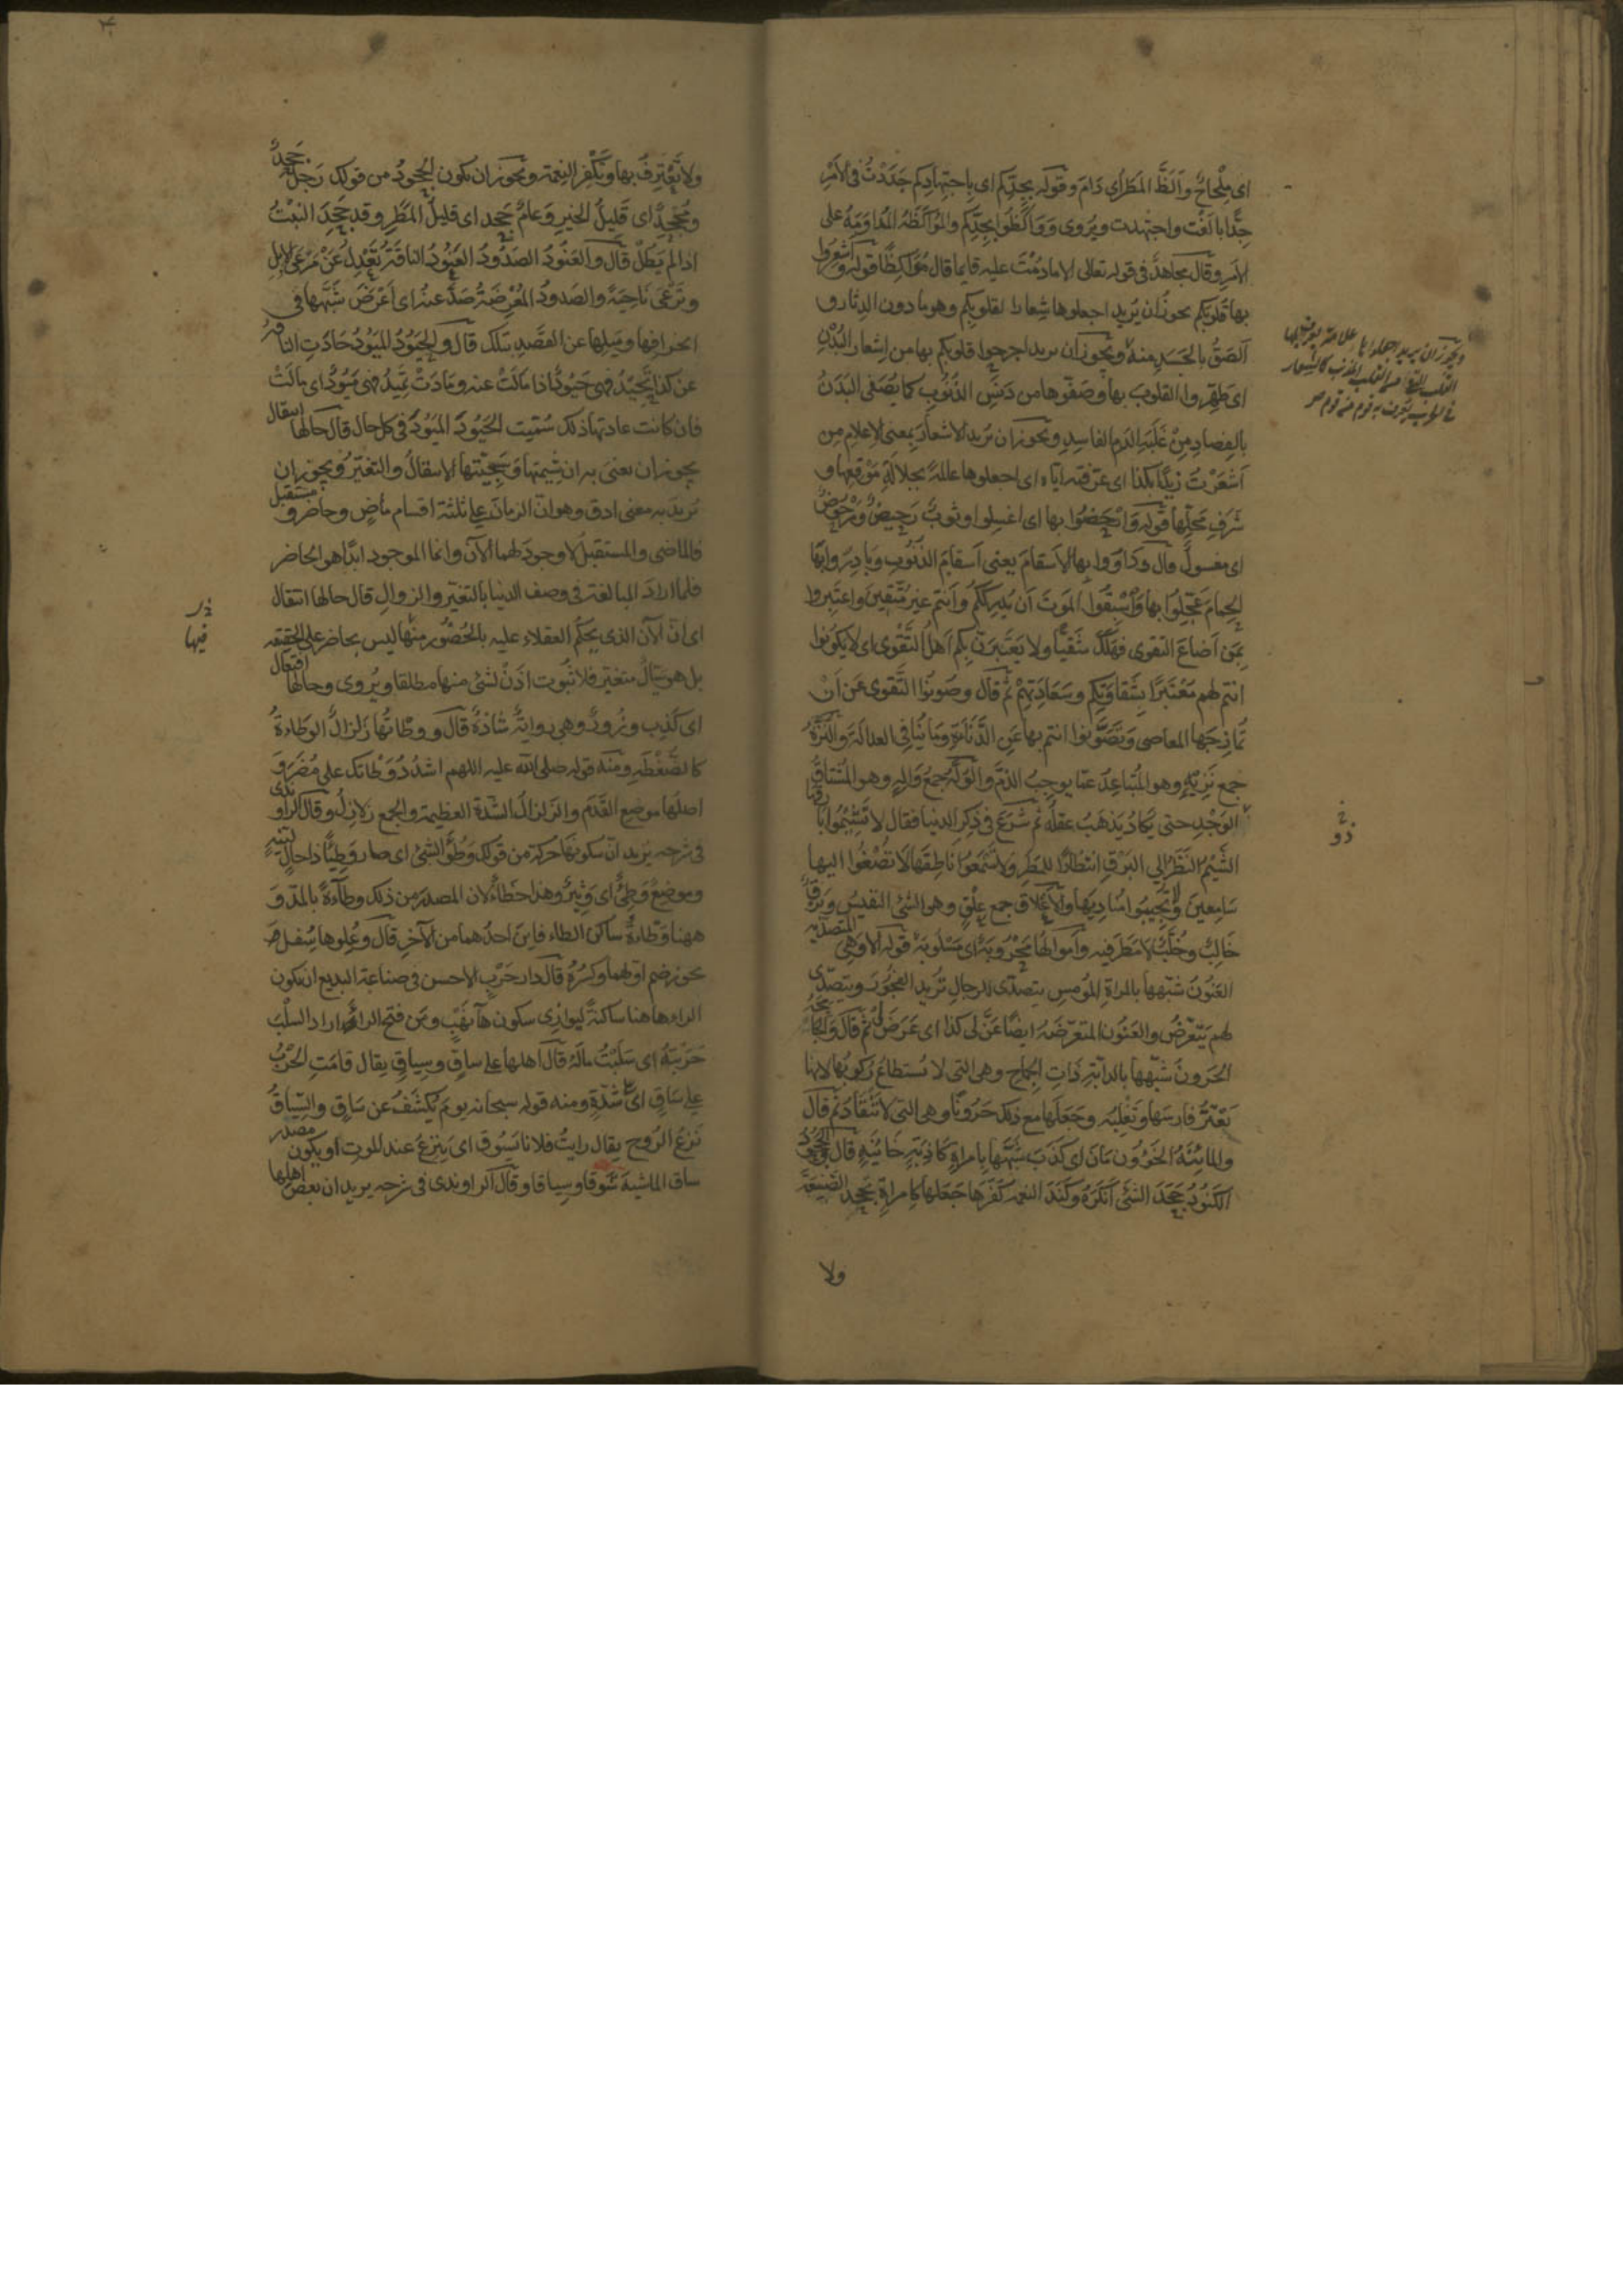 اى مِلْحاحٌ وَاَلَظَّ المَطَرُ اى دَامَ وقوله بجِدِّكم اى باجتهادكم جَدَدْتُ فى الأمْرِ
جِدًّا بالَغْت واجتهدت ويُروى وَوَاكِظُوا بجِدِّكم والمُواكَظَةُ المُداوَمَةُ على
الأمر وقال مجاهدٌ فى قوله تعالى الا مادُمْتَ عليه قايما قال مُوَاكِظًا قوله وأشعِرُوا
بها قُلوبَكم يجوز أن يُريد اجعلوها شِعارا لقلوبكم وهو ما دون الدِثار و
ألصَقُ بالجَسَدِ منهُ ويجوز ان يريد اجرحوا قلوبكم بها من اِشعار البُدْنِ
اى طَهِّروا القلوبَ بها وصَفّوها من دَنَسِ الذُنوبِ كما يُصَفّى البَدَنُ
بالفِصادِ مِنْ غَلَبَةِ الدَم الفاسِدِ ويجوز ان يُريد الاشعارَ بمعنى الاعلام من
اَشعَرْتُ زيدًا بكذا اى عَرّفته ايّاه اى اجعلوها عالمةً بجلالةِ مَوْقِعِها و
شَرَفِ مَحلِّها قوله وَارْحَضُوا بها اى اغسِلوا وثوبٌ رَحيضٌ ومَرْحوضٌ
اى مغسولٌ قال وداوُوا بها الأسقامَ يعنى أسقامَ الذُنوبِ وبَادِرُوا بِها
الحِمامَ عَجّلوا بها وَاسْبِقُوا المَوتَ أن يُدرِككُم وأنتم غيرُ مُتّقينَ واعتَبِروا
بِمَن اَضاعَ التقوى فهَلَكَ شَقيًّا ولا يَعتَبِرَنّ بكم اَهلُ التَقْوى اى لا تكونوا
انتم لهم مُعْتَبَرًا بشَقاوَتِكم وسَعَادَتِهِمْ ثم قال وصُونُوا التَّقوى عَن اَنْ
تُمازِجَها المعاصى وتَصَوَّنُوا انتم بها عَنِ الدَّنَاءَةِ ومَا يُنافى العدالة والنُزَّهُ
جمع نَزيهٍ وهو المُتباعِدُ عمّا يوجِبُ الذمّ والوُلَّهُ جمعُ وَالِهٍ وهو المُشتاقُ
الوَجْدِ حتى يكادُ يَذهَبُ عقلُه ثم شَرَعَ فى ذِكرِ الدنيا فقال لا تَشيمُوا بَارِقَها
الشَّيْمُ النَظَرُ الى البَرْقِ انتظارًا للمَطَرِ ولا تَسمَعُوا ناطِقَها لا تُصْغُوا اليها
سَامِعينَ ولا تُجيبُوا مُنادِيَها والأعْلاق جمع عِلْقٍ وهو الشئ النفيسُ وبَرْقٌ
خَالِبٌ وخُلَّبٌ لا مَطَرَ فيه واَموالُها مَحْرُوبَةٌ اى مَسْلُوبَةٌ قوله ألا وَهِى المتصدّيه
العَنُونُ شبّهها بالمراة المُومِسِ يتصدّى للرجالِ تُريد الفجُورَ ويتصدّى
لهم يَتَعرّضُ والعَنُون المتعرّضَةُ ايضًا عَنَّ لى كذا اى عَرَضَ لى ثم قال وَالجامحة
الحَرونُ شبّهها بالدابّةِ ذَاتِ الجِماحِ وهى التى لا يُستطاعُ رُكوبُها لانها
تَعْتَزُّ فارسَها وتَغْلِبُه وجَعَلها مع ذلك حَرُونًا وهى التى لا تَنْقَادُ ثم قال
والمائِنَةُ الخَؤُون مَانَ اى كَذَبَ شبّهها بامراةٍ كاذبَةٍ خَائِنَةٍ قال والجَحُودُ
الكَنُودُ جَحَدَ الشئَ اَنكَرَهُ وكَنَدَ النعمة كَفَرَها جَعَلها كامراةٍ تجحد الصَنيعَةَ
ولا
ولا تَعْتَرِفُ بها وتَكْفُر النِعمةَ ويجوز ان يكون الجَحُودُ من قولك رَجُلٌ جَحِدٌ
ومُجْحِدٌ اى قَليلُ الخيرِ وعَامٌ جَحِد اى قليلُ المَطَرِ وقد جَحِدَ النَبْتُ
اذا لم يَطُلْ قال والعَنُودُ الصَدُودُ العَنُودُ الناقَةُ تَعْدِلُ عَنْ مَرعَى الابِلِ
وتَرْعَى نَاحِيَةً والصَدودُ المُعْرِضَةُ صَدَّ عنهُ اى اَعْرَضَ شَبَّهها فى
انحرافِها ومَيلِها عن القصْدِ بتلك قال والحَيُودُ المَيُودُ حَادَتِ الناقةُ
عن كذا تَحيدُ فهى حَيُودٌ اذا مالَتْ عنه ومَادَتْ تَميدُ فهى مَيُودٌ اى مالَتْ
فان كانت عادتها ذلك سُمّيت الحَيُودَ المَيُودَ فى كل حال قال حالُها انتقالٌ
يجوز ان يعنىَ به ان شيمتها وسَجِيَّتها الانتقالُ والتغيّرُ ويجوز ان
يُريدَ به معنى ادق وهو انّ الزمانَ على ثلثة اقسام ماضٍ وحاضرٍ ومستقبل
فالماضى والمستقبلُ لا وجودَ لهما الآنَ وانما الموجود ابدًا هو الحاضر
فلما اراد المبالغة فى وصف الدنيا بالتغيّر والزوالِ قال حالها انتقال
اى انّ الآن الذى يحكُم العقلاء عليه بالحُضُور منها ليس بحاضر على الحقيقه
بل هو سيّالٌ متغير فلا ثبُوت اذَنْ لشئ منها مطلقا ويُروى وحالها افتعال
اى كَذِب وزُورٌ وهى روايةٌ شاذةٌ قال ووطْاتُها زلزالٌ الوَطاءةُ
كالضَغْطَةِ ومنه قوله صلى الله عليه اللهم اشدُدْ وَطْاتَك على مُضَرَ و
اصلُها موضِع القَدَم والزَلزالُ الشدّة العظيمة والجمع زلازِلُ وقال الراوندى
فى شرحه يريد انّ سكونها حركة من قولك وَطُؤَ الشئ اى صار وَطيئًا ذا حالٍ لَيّنةٍ
وموضعٌ وَطِئٌ اى وَثيرٌ وهذا خطاءٌ لان المصدَر من ذلك وطاءةٌ بالمدّ و
ههنا وَطاةٌ ساكن الطاء فاينَ احدُهما من الآخرِ قال وعُلوها سُفلٌ
يجوز ضم اولهما وكسرُهُ قال دار حَرْبٍ الاحسن فى صناعة البديع ان يكون
الراء هاهنا ساكنةً ليوازِى سكون هاء نَهْبٍ ومَن فتح الراءَ اراد السلْبَ
حَرَبتهُ اى سَلَبْتُ مالَهُ قال اهلها على ساقٍ وسِياقٍ يقال قامَتِ الحَرْبُ
على سَاقٍ اى على شدّةٍ ومنه قوله سبحانه يومَ يُكْشَفُ عن سَاقٍ والسِّياقُ
نَزعُ الرُوحِ يقال رايتُ فلانا يَسُوقُ اى يَنزعُ عند الموت او يكون مصدر
ساق الماشيةَ سَوقًا وسِياقا وقال الراوندى فى شرحه يريد ان بعض اهلها
فيها
ذو